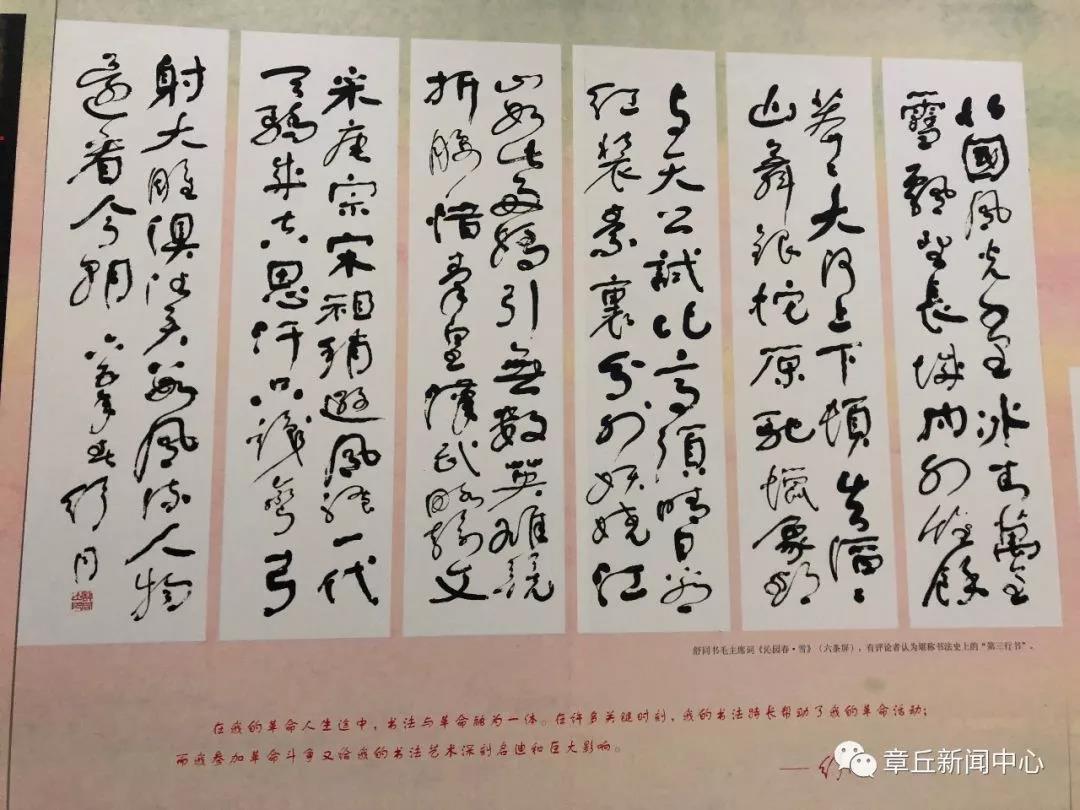 北國風光千里冰封萬里
雪飄望長城内外惟餘
莽〻大河上下頓失滔〻
山舞銀蛇原馳蠟象欲
与天公試比高須晴日看
红裝素裹分外妖嬈江
山如此多嬌引無數英雄競
折腰惜秦皇漢武略輸文
采唐宗宋祖稍遜風騷一代
天驕成吉思汗只識彎弓
射大雕俱往矣數風流人物
還看今朝 年春 舒同
舒同书毛主席词《沁园春·雪》（六条屏），有评论者认为堪称书法史上的“第三行书”。
在我的革命人生途中，书法与革命融为一体。在许多关键时刻，我的书法特长帮助了我的革命活动；
而我参加革命斗争又给我的书法艺术深刻启迪和巨大影响。
章丘新闻中心